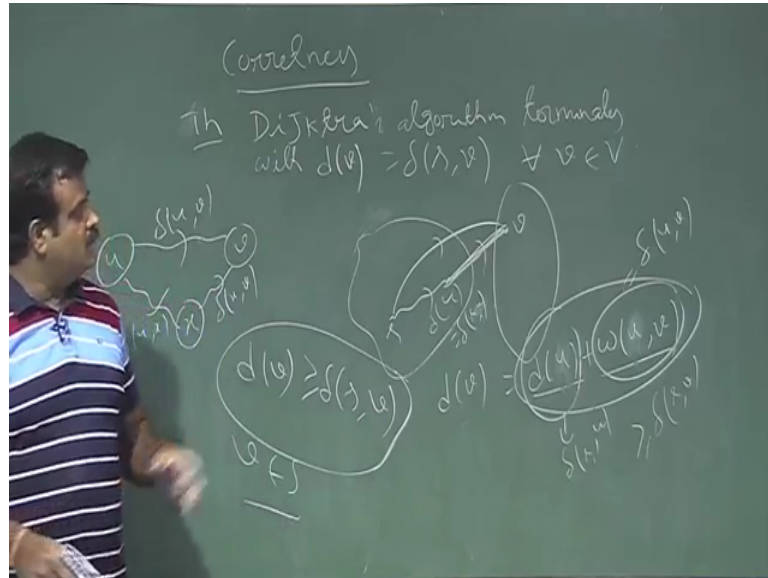 Correctness
Th Dijktra's algorithm terminates
with d(v) = δ(s,v) ∀ v ∈ V
δ(u,v)
u
v
x
s
v
d(u)
d(v) ≥ δ(s,v)
v ∈ S
d(v) = d(u) + w(u,v)
δ(u,v)
δ(s,u)
≥ δ(s,v)